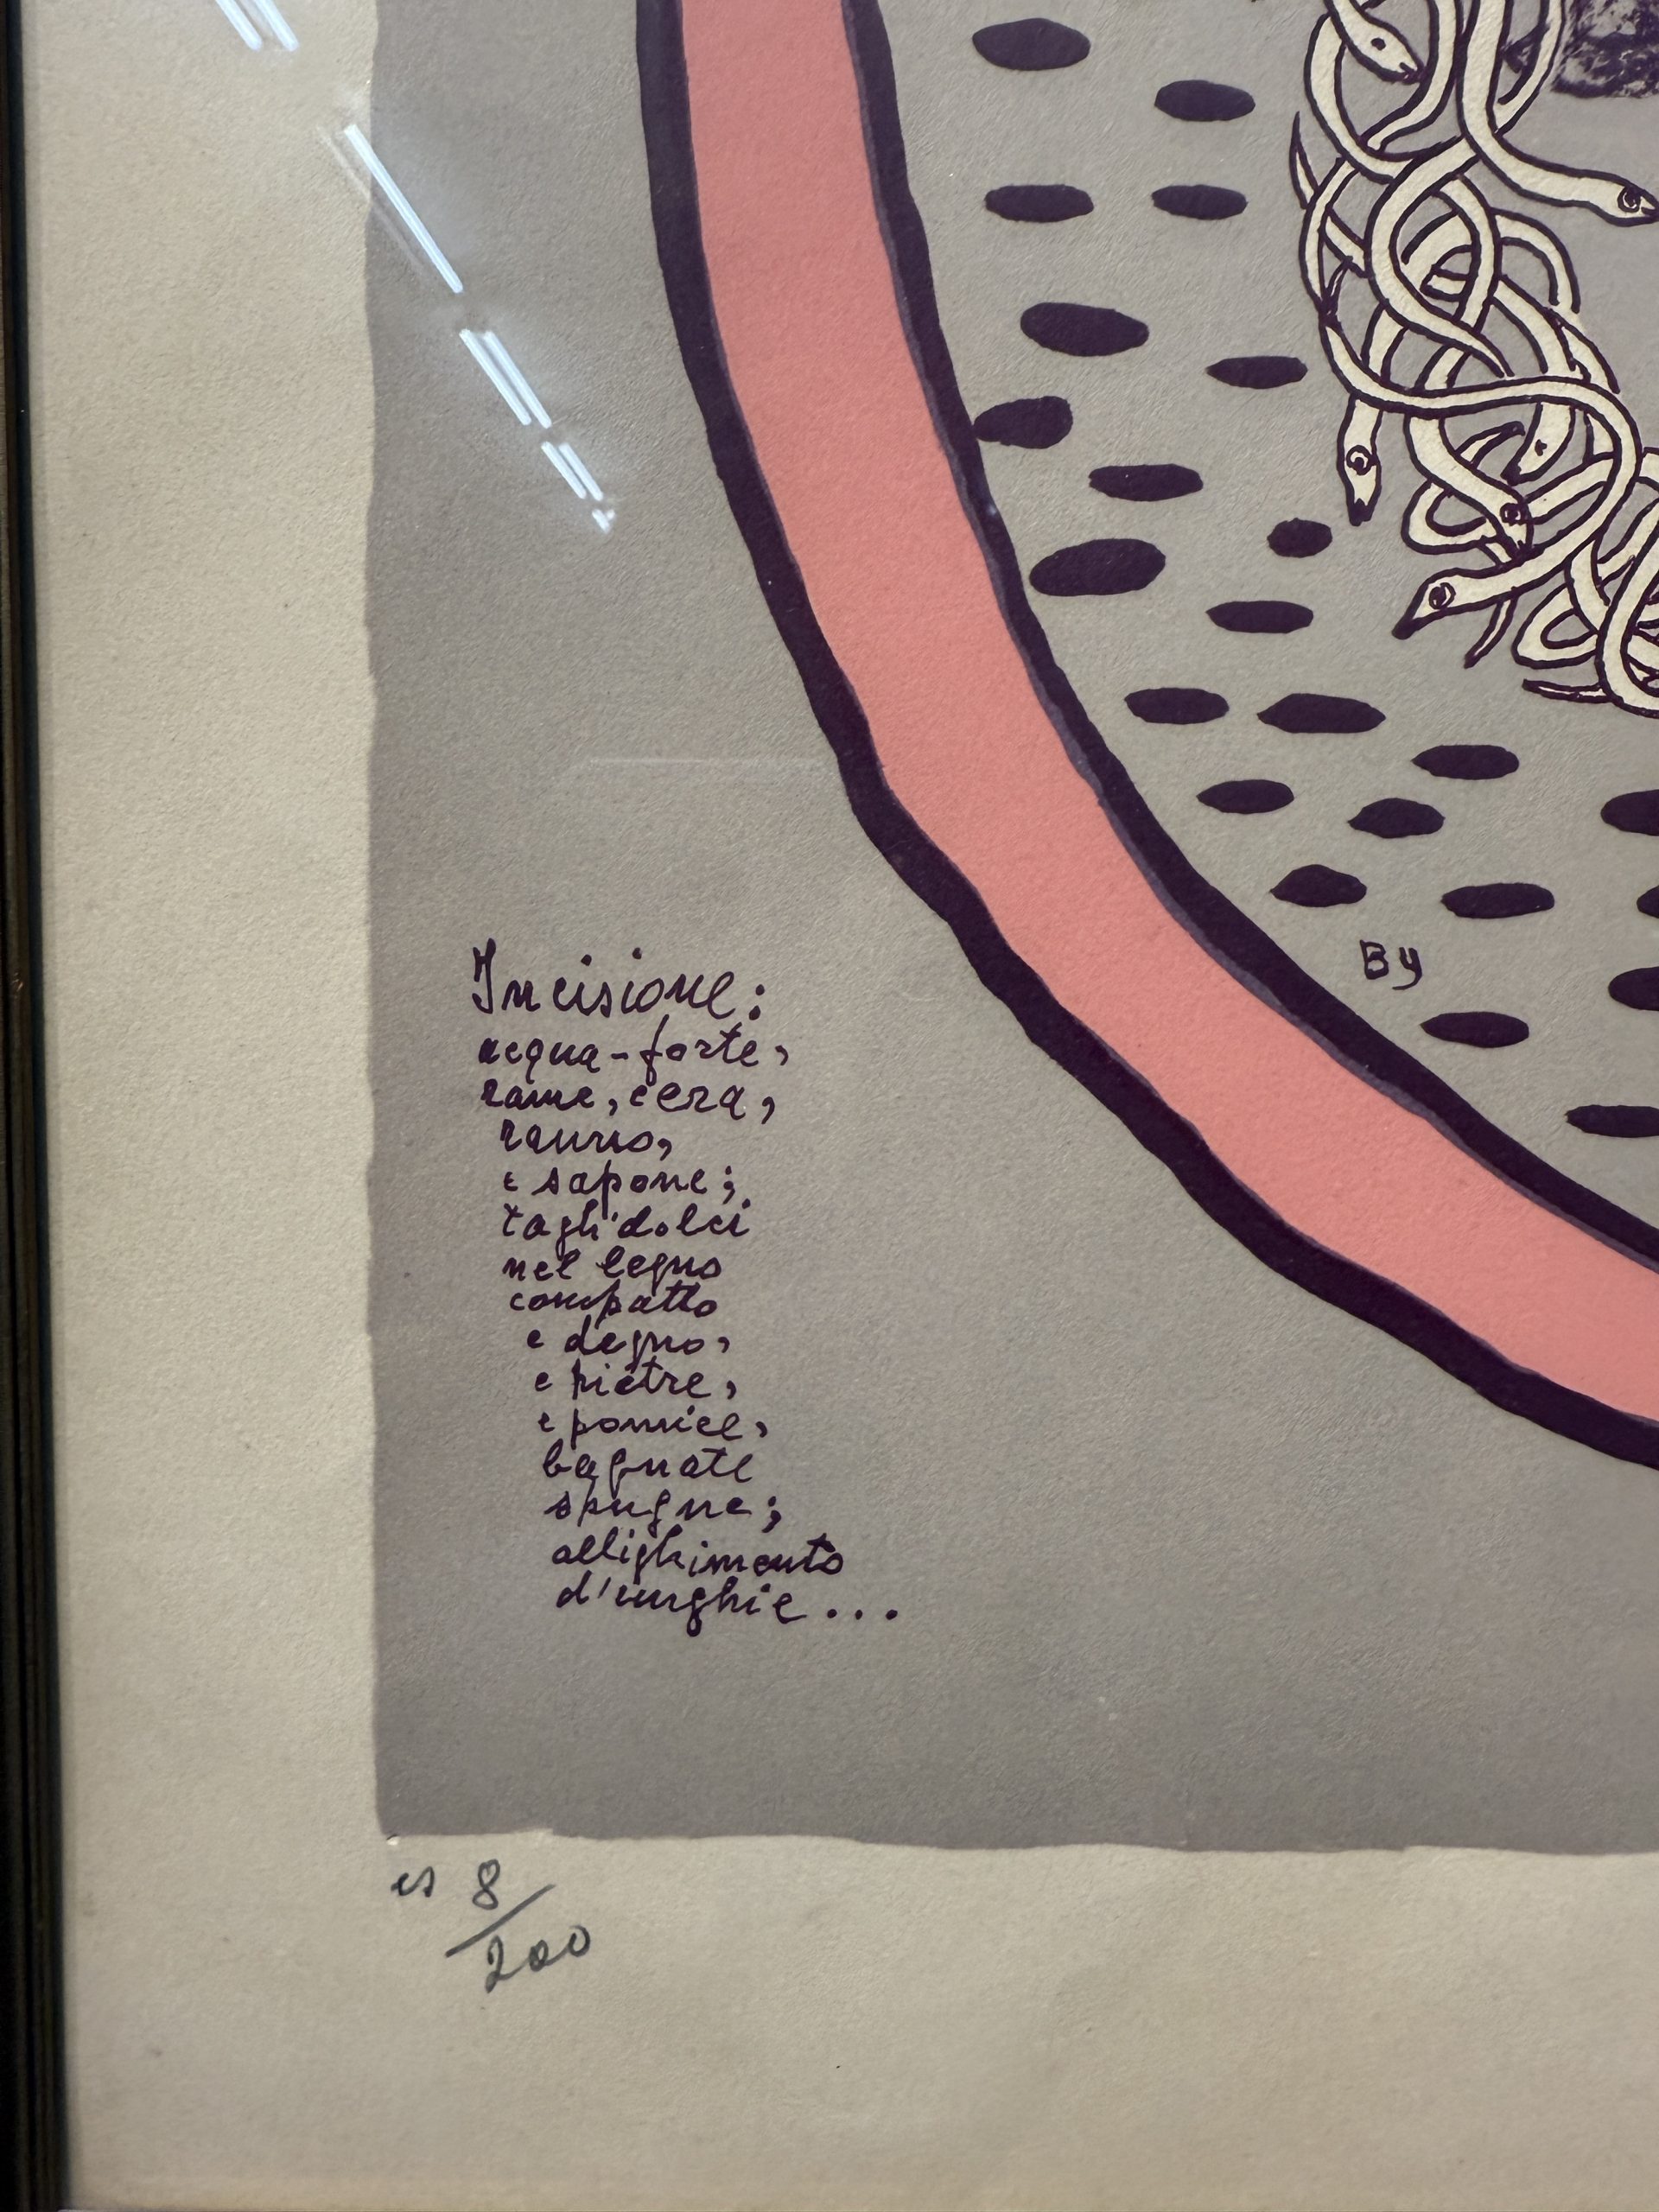 By
Incisione:
acqua-forte,
rame, cera,
ranno,
e sapone;
tagli dolci
nel legno
compatto
e degno,
e pietre,
e pomice,
bagnate
spugne;
allighimento
d'unghie...
es 8/200